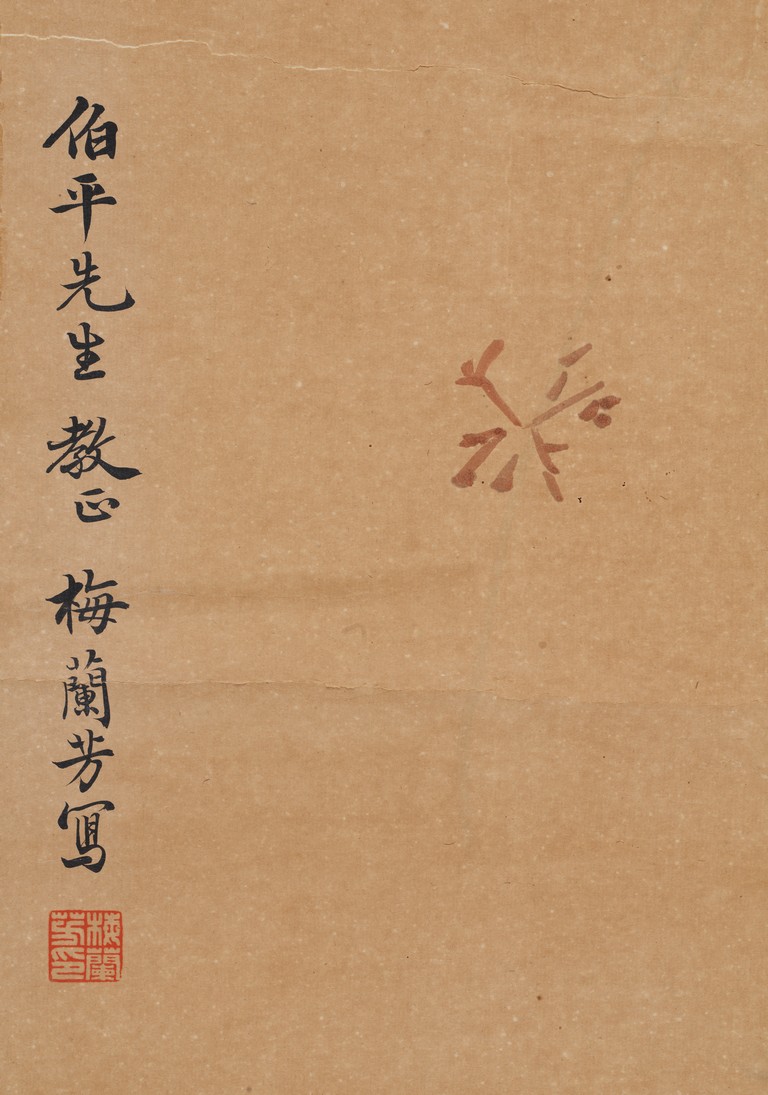 伯平先生 教正 梅蘭芳寫
梅蘭芳印